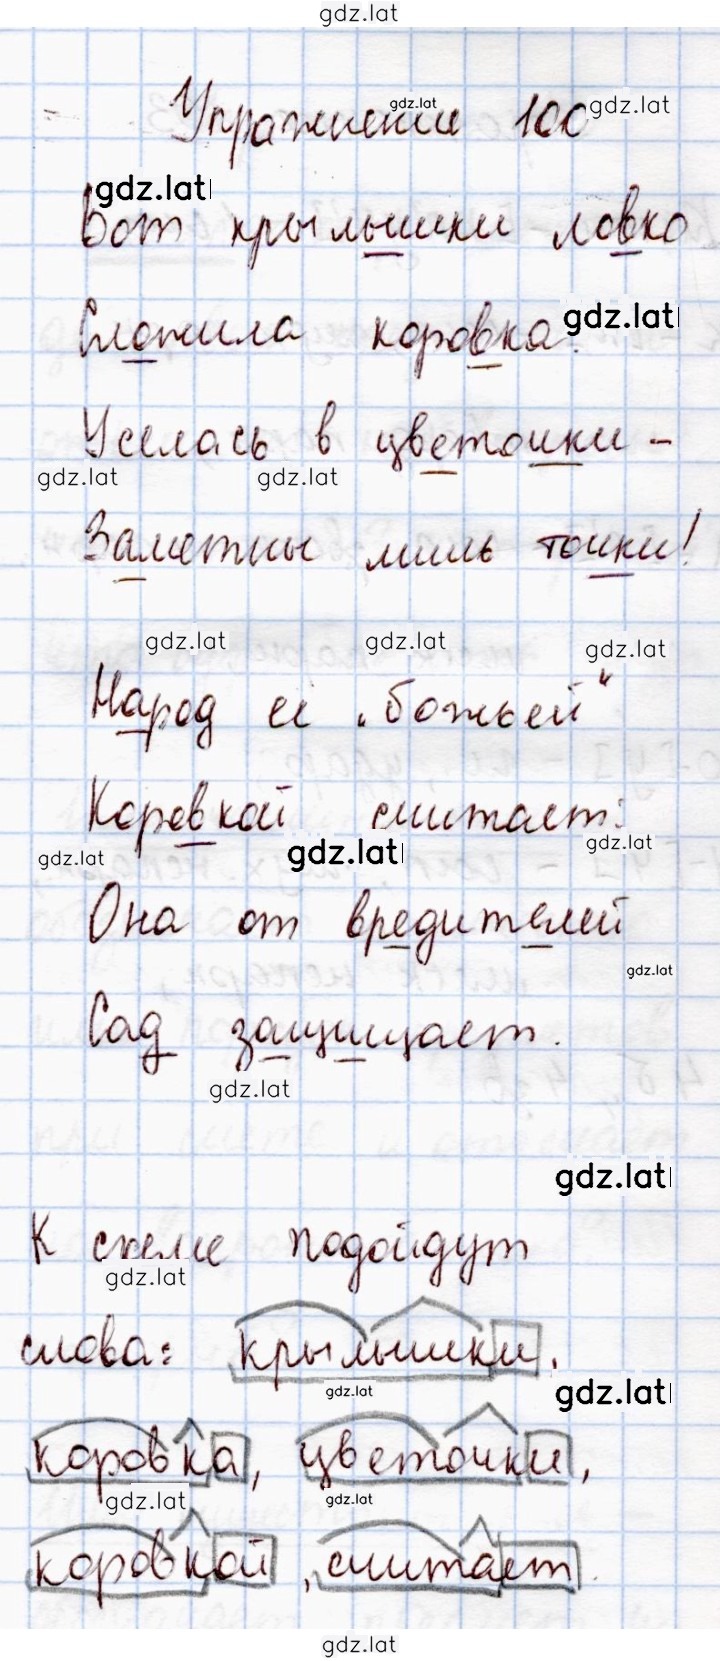 gdz.lat
Упражнение 100
gdz.lat
gdz.lat
gdz.lat
Вот крылышки ловко
Сложила коровка.
gdz.lat
Уселась в цветочки -
gdz.lat
gdz.lat
Заметны лишь точки!
gdz.lat
gdz.lat
gdz.lat
Народ её „божьей"
Коровкой считает:
gdz.lat
gdz.lat
gdz.lat
Она от вредителей
gdz.lat
Сад защищает.
gdz.lat
gdz.lat
К схеме подойдут
gdz.lat
слова: крылышки,
gdz.lat
gdz.lat
коровка, цветочки,
gdz.lat
gdz.lat
коровкой, считает.
gdz.lat